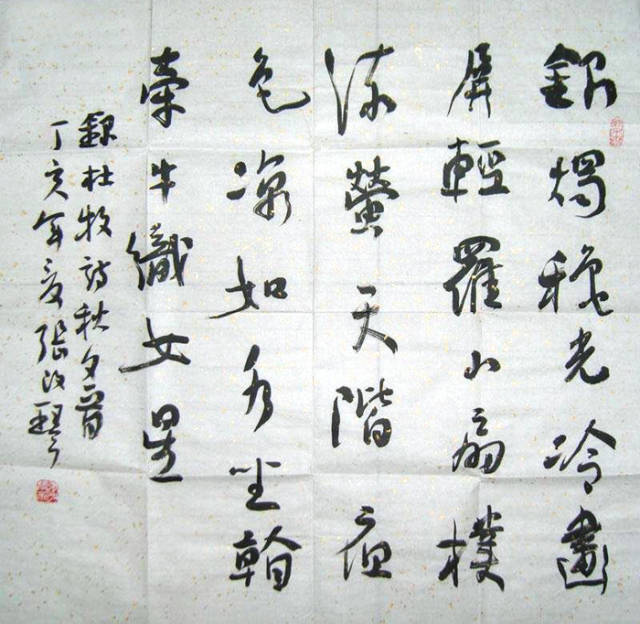 銀燭穐光冷畫
屏輕羅小扇撲
流螢天階夜
色涼如水坐看
牽牛織女星
錄杜牧詩秋夕一首
丁亥年夏張改琴